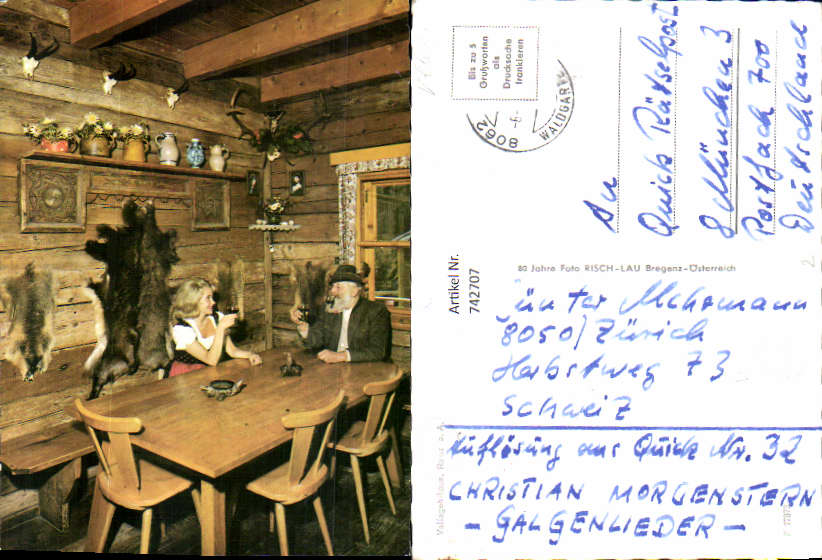 Bis zu 5
Grußworten
als
Drucksache
frankieren
8062 WALDGAR
An
Quick Rätselpost
8 München 3
Postfach 700
Deutschland
Artikel Nr.
742707
80 Jahre Foto RISCH-LAU Bregenz-Österreich
8050/Zürich
Herbstweg 73
Schweiz
Auflösung aus Quick Nr. 32
CHRISTIAN MORGENSTERN
- GALGENLIEDER -